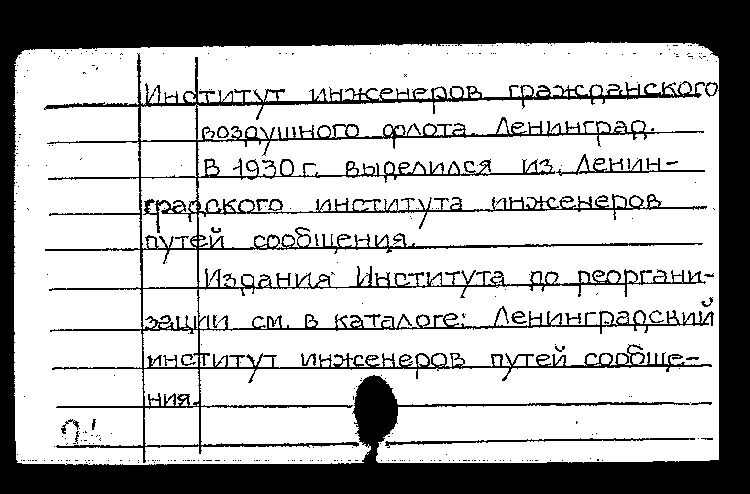 Институт инженеров гражданского
воздушного флота. Ленинград.
В 1930 г. выделился из Ленин-
градского института инженеров
путей сообщения.
Издания Института до реоргани-
зации см. в каталоге: Ленинградский
институт инженеров путей сообще-
ния.